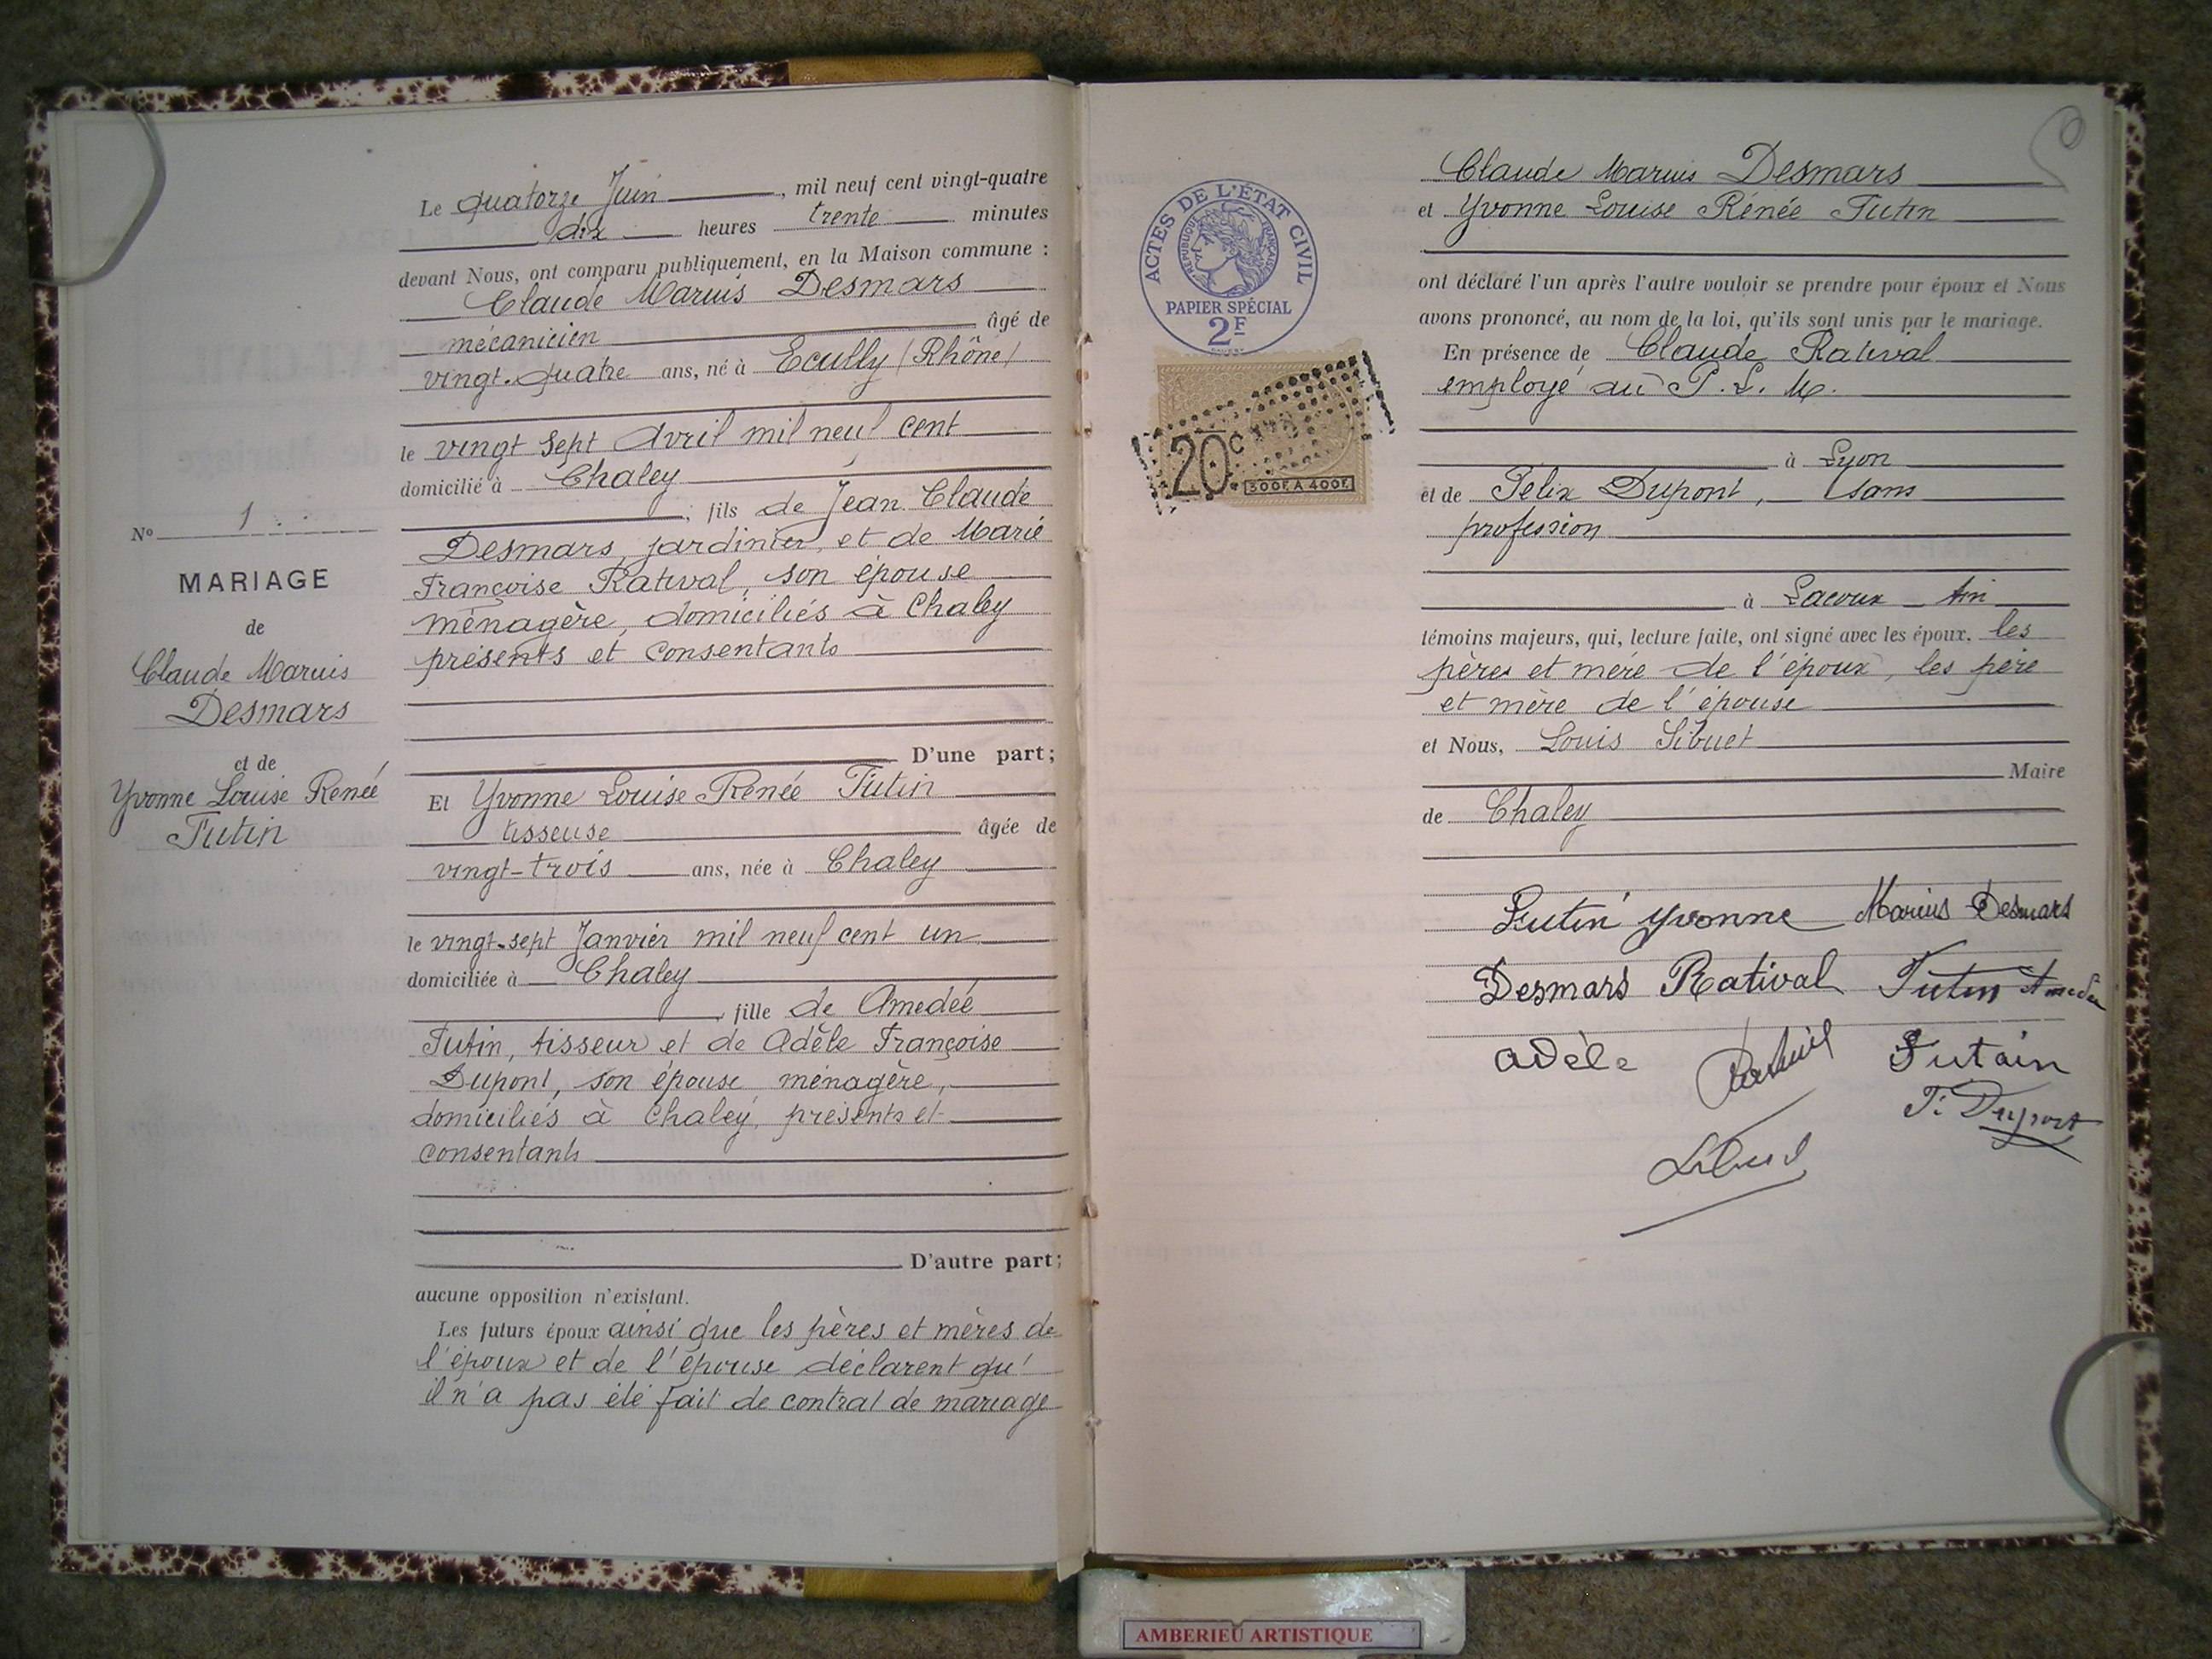 N° 1
MARIAGE
de
Claude Marius
Desmars
et de
Yvonne Louise Renée
Tutin
Le quatorze Juin, mil neuf cent vingt-quatre
dix heures trente minutes
devant Nous, ont comparu publiquement, en la Maison commune :
Claude Marius Desmars
mécanicien âgé de
vingt-quatre ans, né à Ecully (Rhône)
le vingt sept Avril mil neuf cent
domicilié à Chaley
, fils de Jean Claude
Desmars, jardinier, et de Marie
Françoise Ratival, son épouse
ménagère, domiciliés à Chaley
présents et consentants
D'une part;
Et Yvonne Louise Renée Tutin
tisseuse âgée de
vingt-trois ans, née à Chaley
le vingt-sept Janvier mil neuf cent un
domiciliée à Chaley
, fille de Amedée
Tutin, tisseur et de Adèle Françoise
Dupont, son épouse ménagère,
domiciliés à Chaley, présents et
consentants
D'autre part;
aucune opposition n'existant.
Les futurs époux ainsi que les pères et mères de
l'époux et de l'épouse déclarent qu'
il n'a pas été fait de contrat de mariage
ACTES DE L'ÉTAT CIVIL
RÉPUBLIQUE FRANÇAISE
PAPIER SPÉCIAL
2F
20c
300F. A 400F.
Claude Marius Desmars
et Yvonne Louise Renée Tutin
ont déclaré l'un après l'autre vouloir se prendre pour époux et Nous
avons prononcé, au nom de la loi, qu'ils sont unis par le mariage.
En présence de Claude Ratival
employé au P. L. M.
à Lyon
et de Félix Dupont, sans
profession
à Lacoux Ain
témoins majeurs, qui, lecture faite, ont signé avec les époux. les
pères et mère de l'époux, les père
et mère de l'épouse
et Nous, Louis Sibuet
Maire
de Chaley
Tutin Yvonne Marius Desmars
Desmars Ratival Tutin Amedée
adèle Ratival Tutain
F. Dupont
Sibuet
AMBERIEU ARTISTIQUE